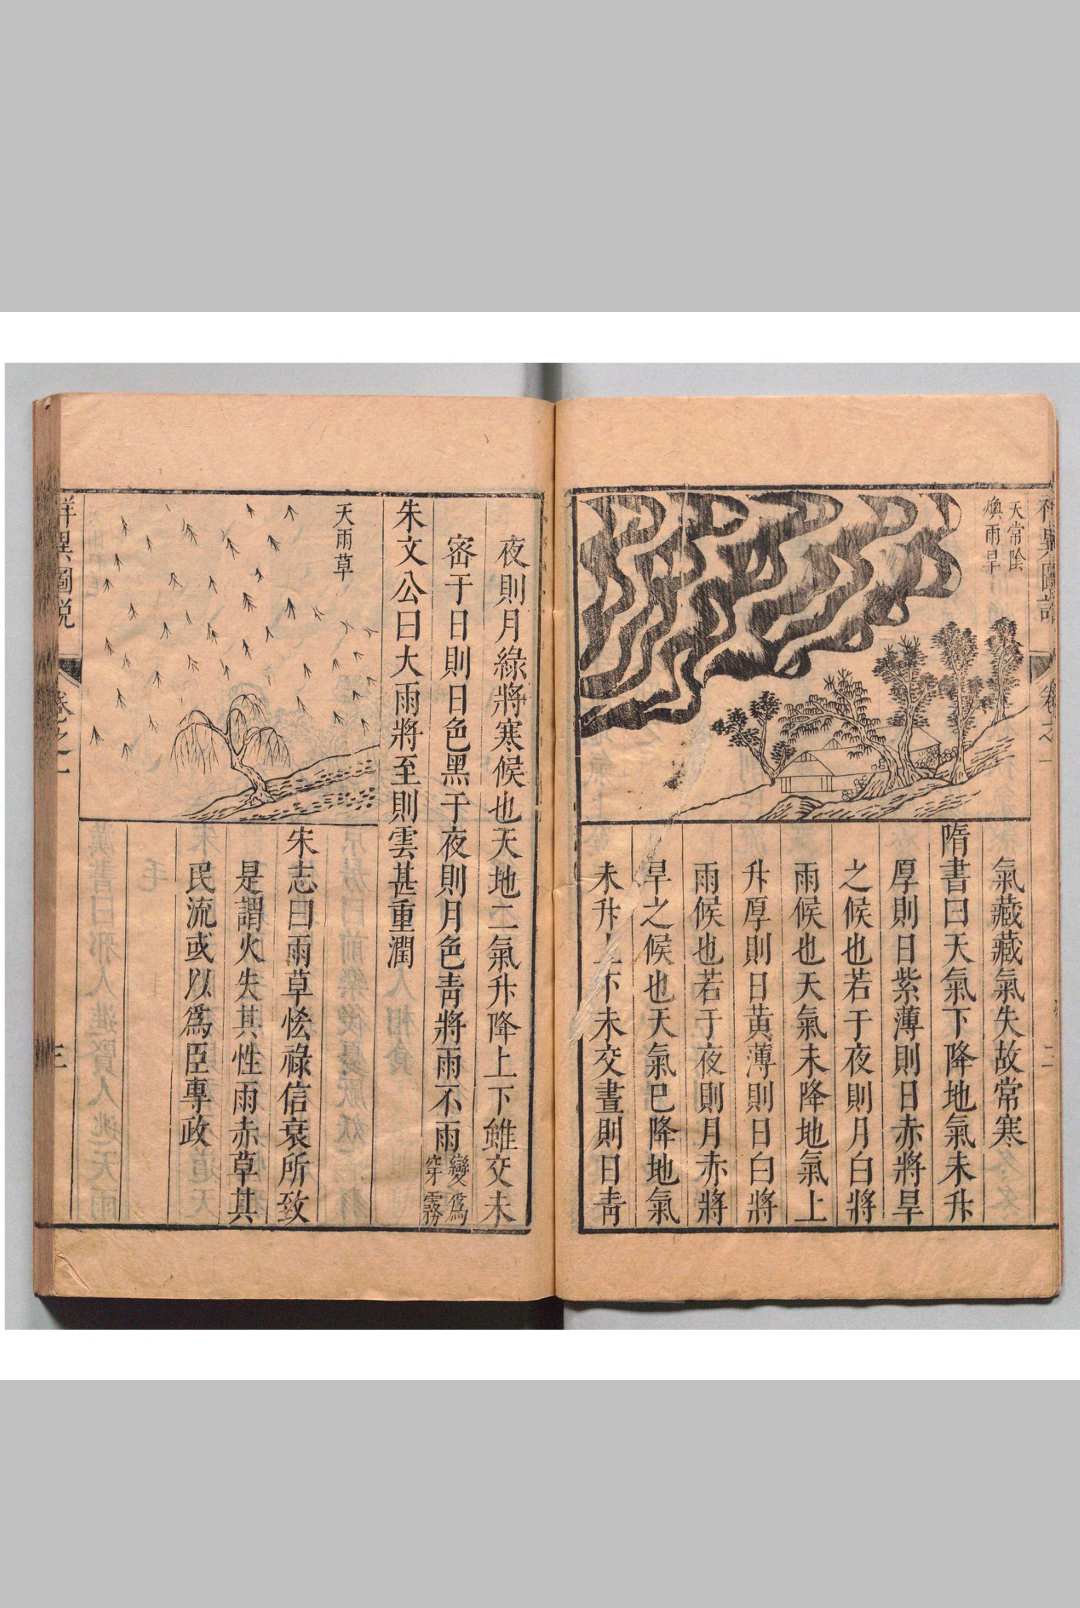 天常陰
煥雨旱
氣藏藏氣失故常寒
隋書曰天氣下降地氣未升
厚則日紫薄則日赤將旱
之候也若于夜則月白將
雨候也天氣未降地氣上
升厚則日黃薄則日白將
雨候也若于夜則月赤將
旱之候也天氣已降地氣
未升上下未交晝則日靑
夜則月綠將寒候也天地二氣升降上下雖交未
密于日則日色黑于夜則月色靑將雨不雨變爲
穿霧
朱文公曰大雨將至則雲甚重潤
天雨草
宋志曰雨草恡祿信衰所致
是謂火失其性雨赤草其
民流或以爲臣專政
祥異圖說
卷之一
三